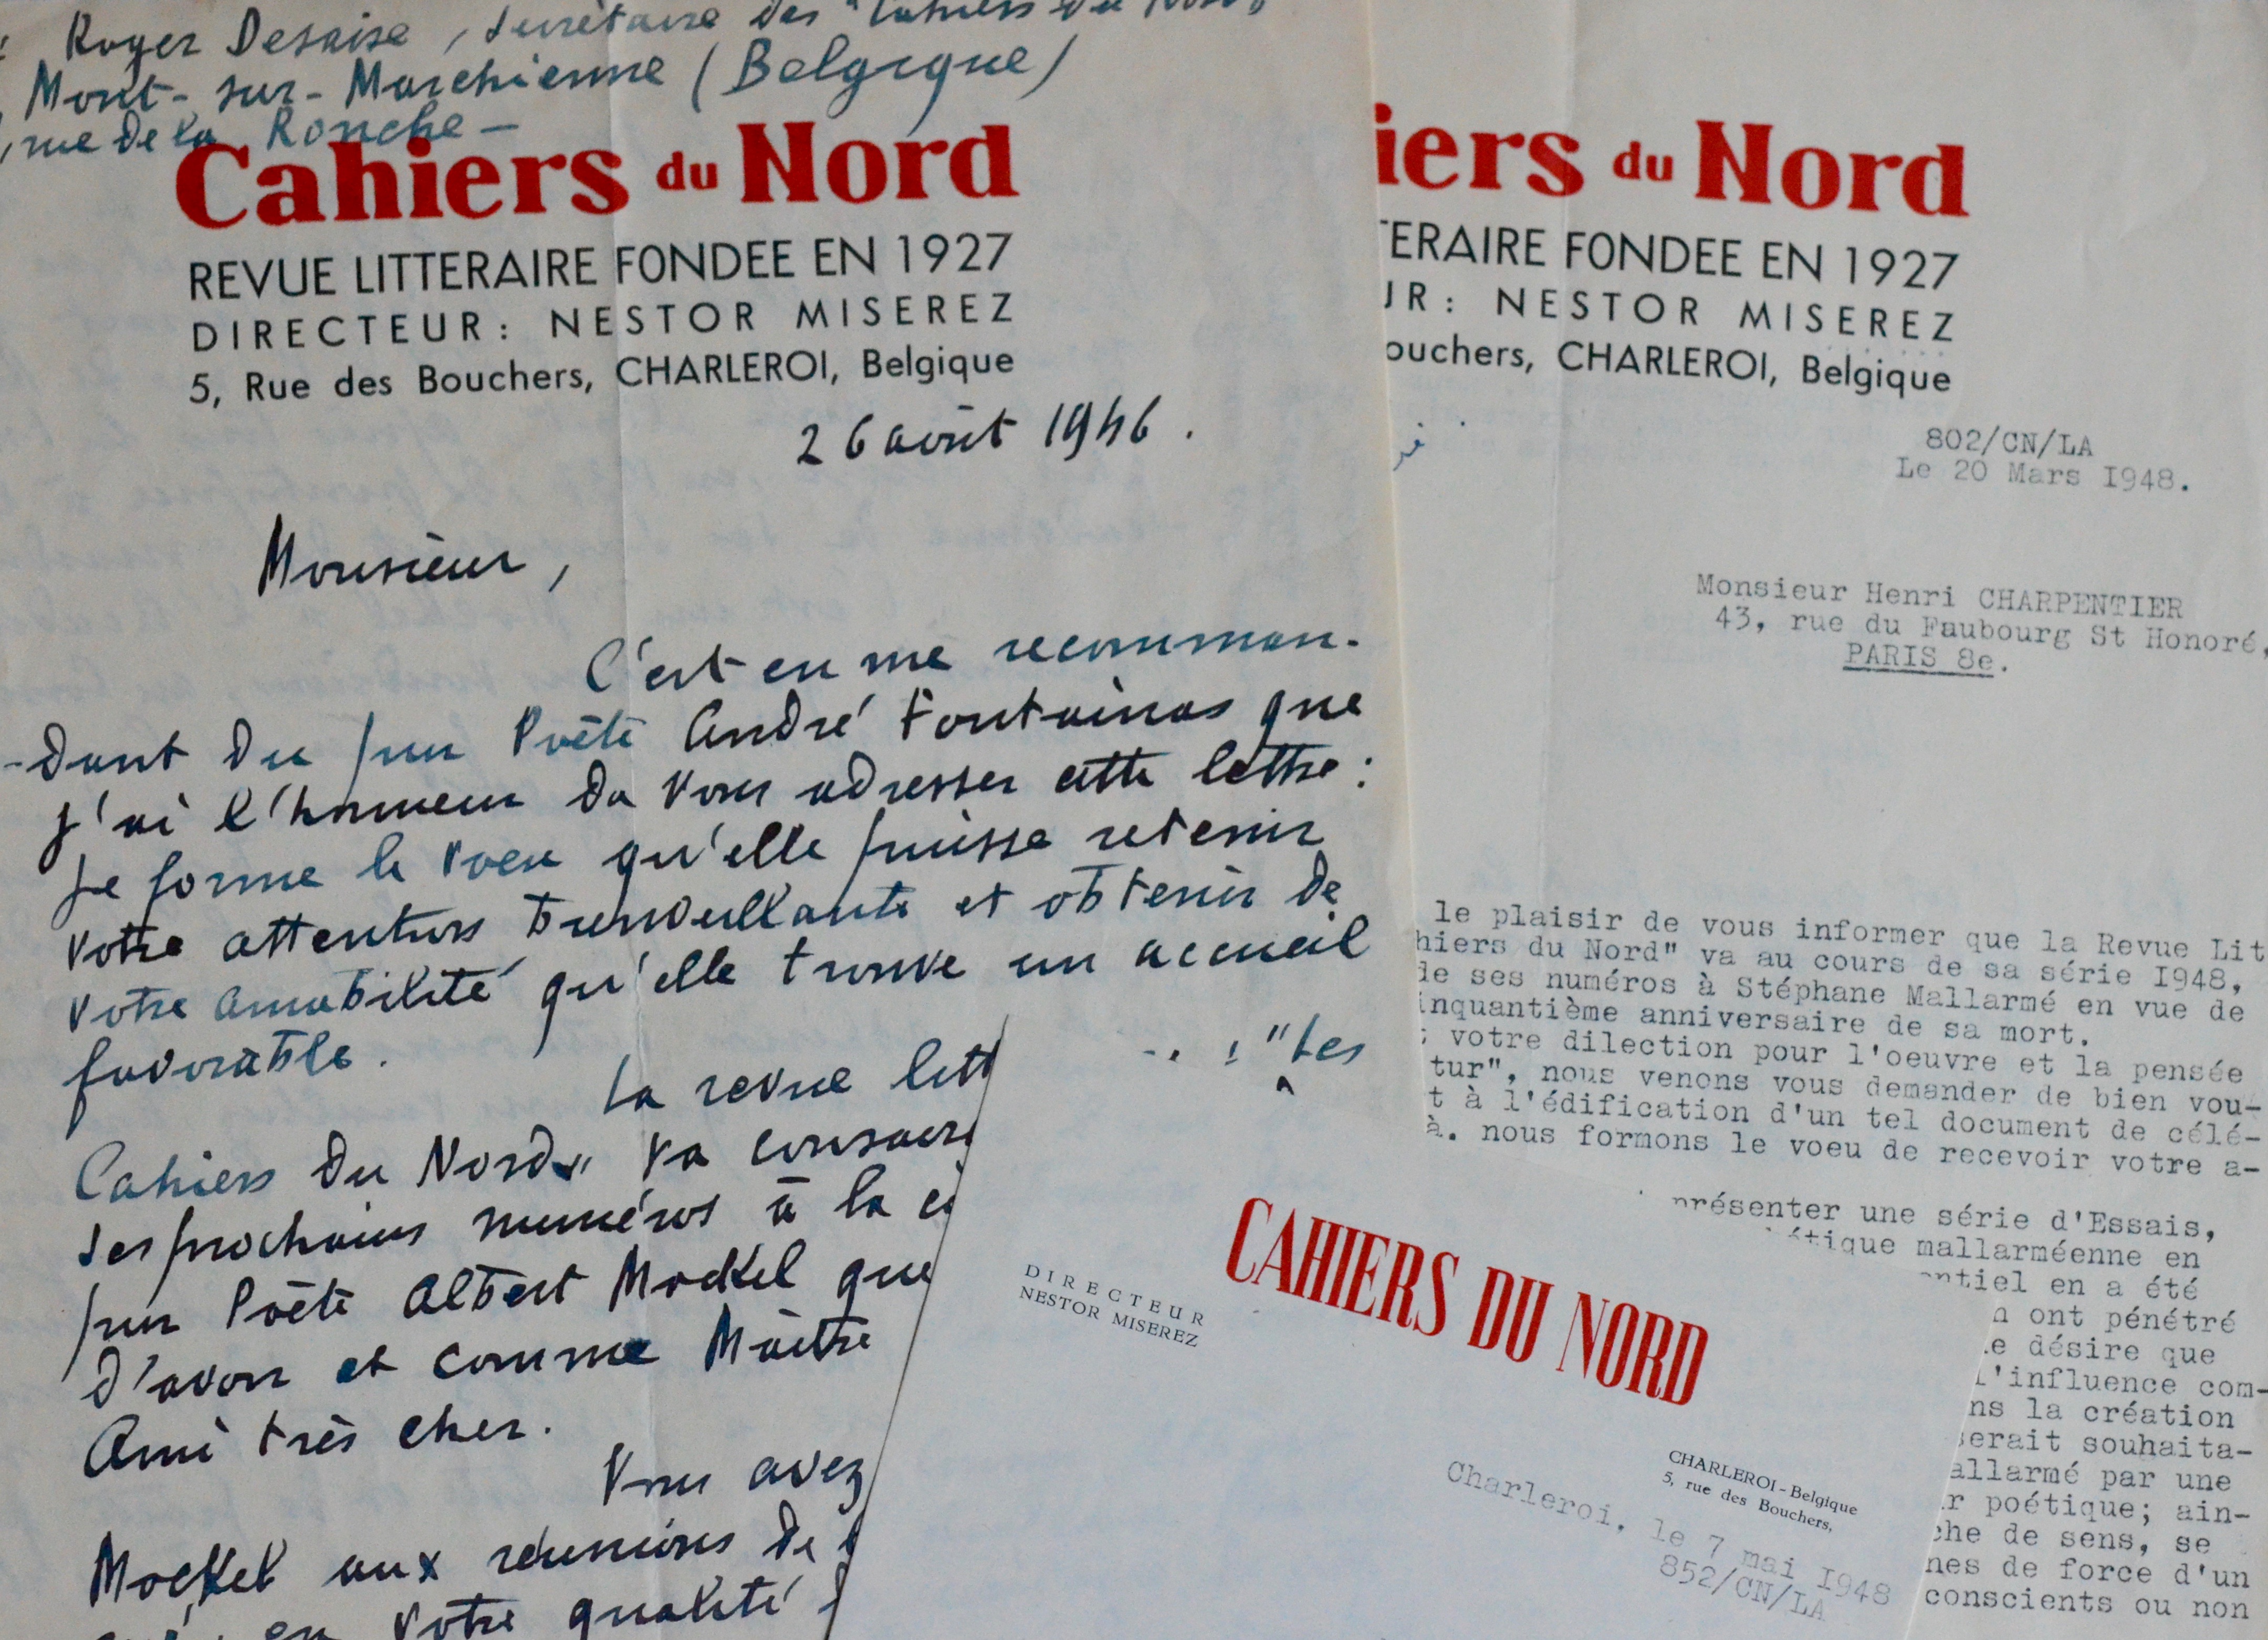 Roger Desaise, secrétaire des "Cahiers du Nord"
Mont-sur-Marchienne (Belgique)
, rue de la Ronche -
Cahiers du Nord
REVUE LITTERAIRE FONDEE EN 1927
DIRECTEUR: NESTOR MISEREZ
5, Rue des Bouchers, CHARLEROI, Belgique
26 août 1946.
Monsieur,
C'est en me recomman-
-dant du pur Poète André Fontainas que
j'ai l'honneur de vous adresser cette lettre:
je forme le voeu qu'elle puisse retenir
votre attention bienveillante et obtenir de
votre amabilité qu'elle trouve un accueil
favorable.
La revue litt
"Les
Cahiers du Nord" va consacr
ses prochains numéros à la
pur Poète Albert Mockel que
d'avoir et comme Maître
Ami très cher.
Vous avez
Mockel aux réunions de
en votre qualité
iers du Nord
TERAIRE FONDEE EN 1927
UR: NESTOR MISEREZ
ouchers, CHARLEROI, Belgique
802/CN/LA
Le 20 Mars I948.
Monsieur Henri CHARPENTIER
43, rue du Faubourg St Honoré,
PARIS 8e.
le plaisir de vous informer que la Revue Lit
hiers du Nord" va au cours de sa série I948,
de ses numéros à Stéphane Mallarmé en vue de
inquantième anniversaire de sa mort.
votre dilection pour l'oeuvre et la pensée
tur", nous venons vous demander de bien vou-
t à l'édification d'un tel document de célé-
à. nous formons le voeu de recevoir votre a-
présenter une série d'Essais,
étique mallarméenne en
entiel en a été
n ont pénétré
e désire que
l'influence com-
ns la création
serait souhaita-
allarmé par une
r poétique; ain-
che de sens, se
nes de force d'un
conscients ou non
DIRECTEUR
NESTOR MISEREZ
CAHIERS DU NORD
CHARLEROI-Belgique
5, rue des Bouchers,
Charleroi, le 7 mai I948
852/CN/LA